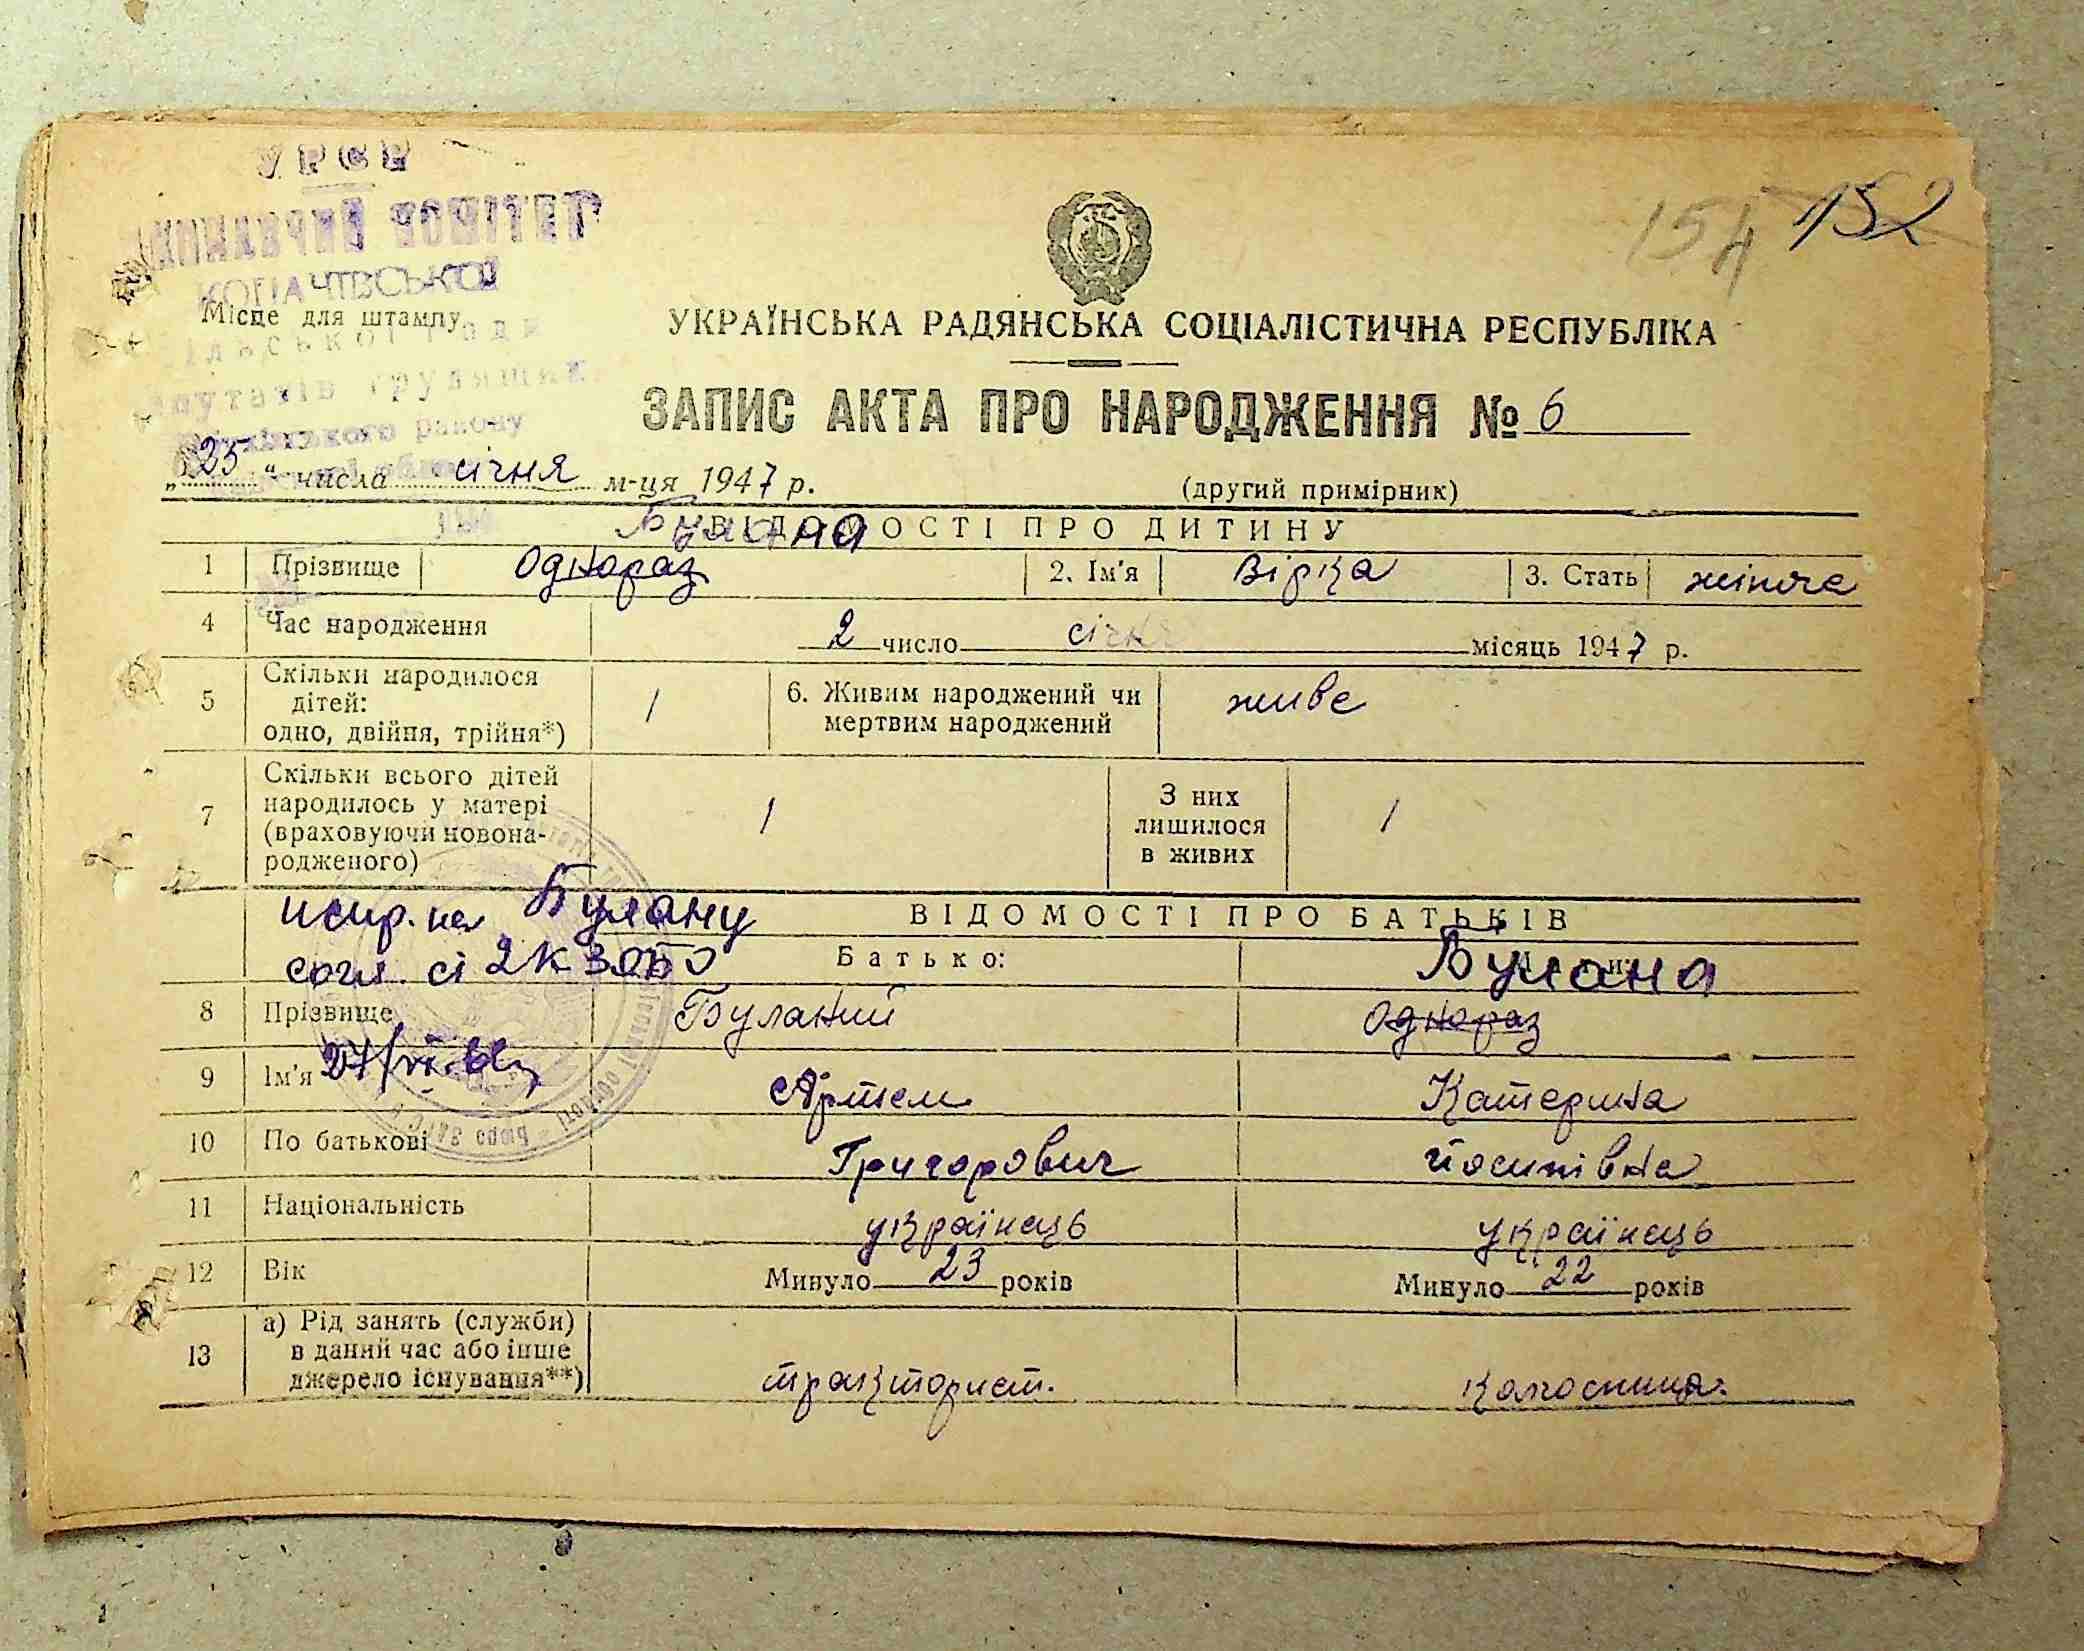 УРСР
КОМІТЕТ
КОПАЧІВСЬКОЇ
Місце для штампу
району
154 152
УКРАЇНСЬКА РАДЯНСЬКА СОЦІАЛІСТИЧНА РЕСПУБЛІКА
ЗАПИС АКТА ПРО НАРОДЖЕННЯ № 6
„25“ числа січня м-ця 1947 р.
(другий примірник)
ВІДОМОСТІ ПРО ДИТИНУ
Булана
1 Прізвище Однораз 2. Ім'я Вірка 3. Стать жіноче
4 Час народження 2 число січня місяць 1947 р.
5 Скільки народилося
дітей:
одно, двійня, трійня*) 1 6. Живим народжений чи
мертвим народжений живе
7 Скільки всього дітей
народилось у матері
(враховуючи новона-
родженого) 1 З них
лишилося
в живих 1
испр. на Булану ВІДОМОСТІ ПРО БАТЬКІВ
согл. Батько: Булана
8 Прізвище Буланий Однораз
9 Ім'я Артем Катерина
10 По батькові Григорович Йосипівна
11 Національність українець українець
12 Вік Минуло 23 років Минуло 22 років
13 а) Рід занять (служби)
в даний час або інше
джерело існування**) тракторист. колгоспниця.